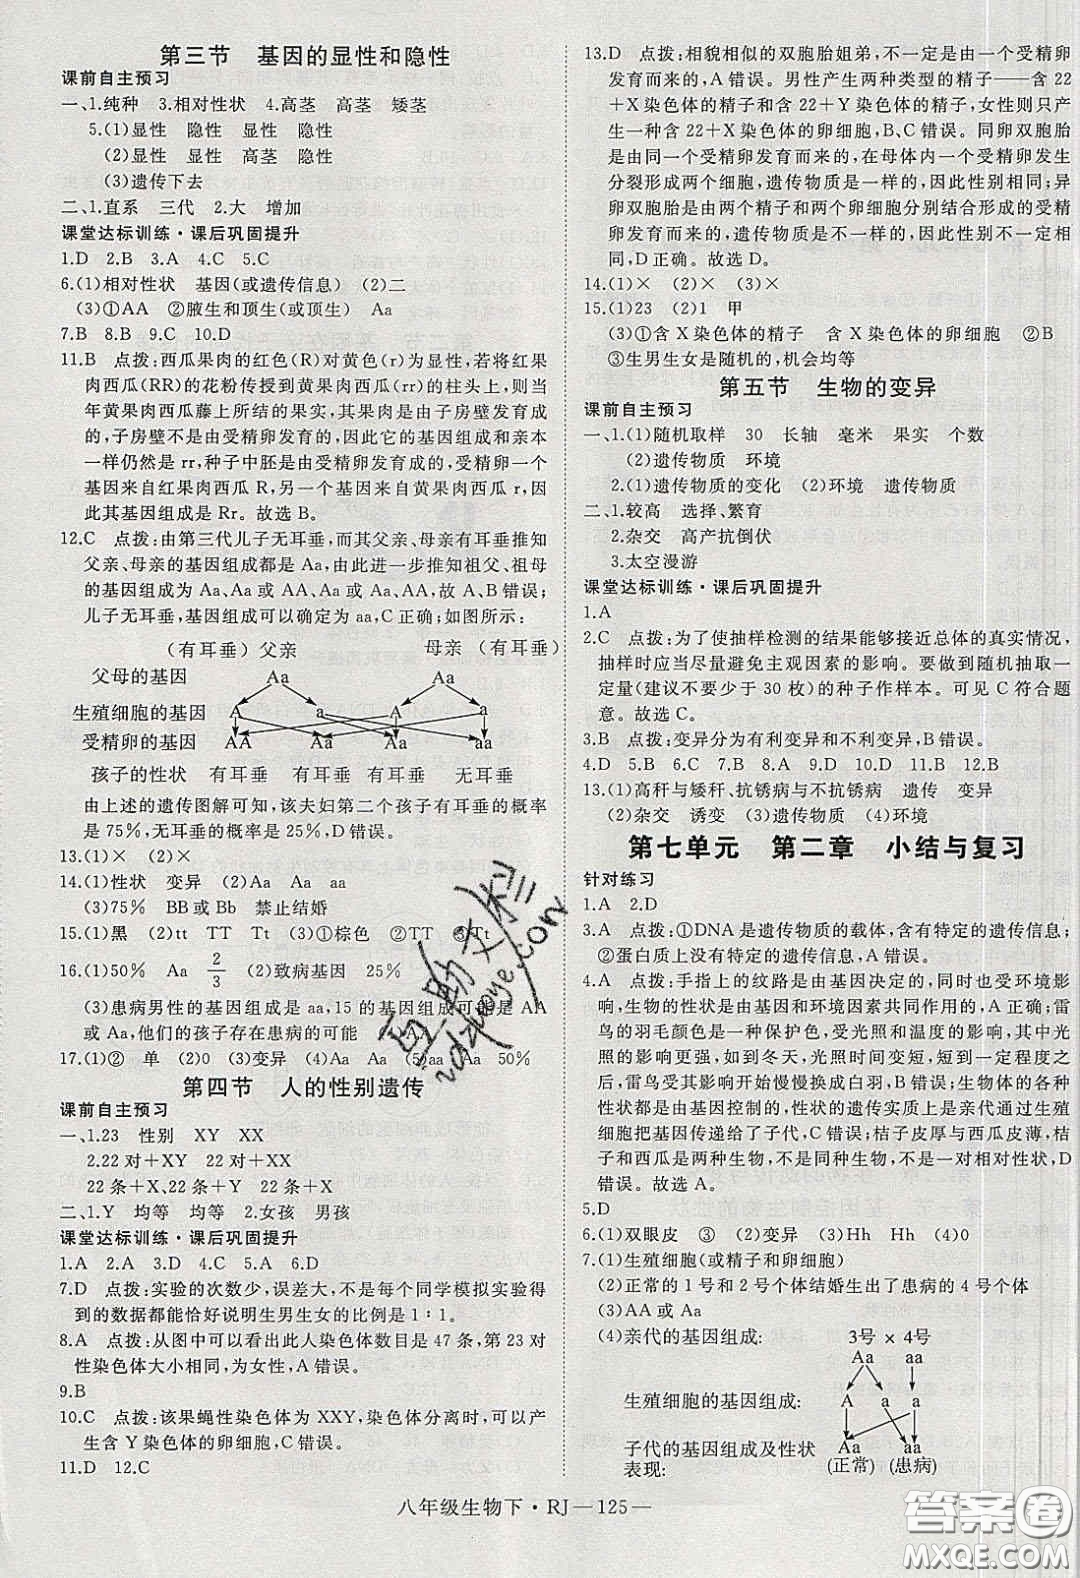 第三节　基因的显性和隐性
课前自主预习
一、1.纯种　3.相对性状　4.高茎　高茎　矮茎
5.(1)显性　隐性　显性　隐性
(2)显性　显性　高茎　隐性
(3)遗传下去
二、1.直系　三代　2.大　增加
课堂达标训练·课后巩固提升
1.D　2.B　3.A　4.C　5.C
6.(1)相对性状　基因(或遗传信息)　(2)二
(3)①AA　②腋生和顶生(或顶生)　Aa
7.B　8.B　9.C　10.D
11.B　点拨:西瓜果肉的红色(R)对黄色(r)为显性,若将红果
肉西瓜(RR)的花粉传授到黄果肉西瓜(rr)的柱头上,则当
年黄果肉西瓜藤上所结的果实,其果肉是由子房壁发育成
的,子房壁不是由受精卵发育的,因此它的基因组成和亲本
一样仍然是 rr,种子中胚是由受精卵发育成的。受精卵一个
基因来自红果肉西瓜 R,另一个基因来自黄果肉西瓜 r,因
此其基因组成是 Rr。故选 B。
12.C　点拨:由第三代儿子无耳垂,而其父亲、母亲有耳垂推知
父亲、母亲的基因组成都是 Aa,由此进一步推知祖父、祖母
的基因为 Aa、Aa 或 AA、Aa 或 AA、aa,故 A、B 错误;
儿子无耳垂,基因组成可以确定为 aa,C 正确;如图所示:
(有耳垂)父亲　母亲 (有耳垂)
父母的基因　Aa　Aa
生殖细胞的基因　A　a　A　a
受精卵的基因　AA　Aa　Aa　aa
孩子的性状　有耳垂　有耳垂　有耳垂　无耳垂
由上述的遗传图解可知,该夫妇第二个孩子有耳垂的概率
是 75%,无耳垂的概率是 25%,D 错误。
13.(1)×　(2)×
14.(1)性状　变异　(2)Aa　Aa　aa
(3)75%　BB 或 Bb　禁止结婚
15.(1)黑　(2)tt　TT　Tt　(3)①棕色　②TT　③Tt
16.(1)50%　Aa　2/3　(2)致病基因　25%
(3)患病男性的基因组成是 aa,15 的基因组成可能是 AA
或 Aa,他们的孩子存在患病的可能　AA
17.(1)②　单　(2)0　(3)变异　(4)Aa　Aa　(5)aa　Aa　50%
第四节　人的性别遗传
课前自主预习
一、1.23　性别　XY　XX
2.22 对＋XY　22 对＋XX
22 条＋X、22 条＋Y　22 条＋X
二、1.Y　均等　均等　2.女孩　男孩
课堂达标训练·课后巩固提升
1.A　2.A　3.D　4.C　5.A　6.D
7.D　点拨:实验的次数少,误差大,不是每个同学模拟实验
得到的数据都能恰好说明生男生女的比例是 1∶1。
8.A　点拨:从图中可以看出此人染色体数目是 47 条,第 23 对
性染色体大小相同,为女性,A 错误。
9.B
10.C　点拨:该果蝇性染色体为 XXY,染色体分离时,可以产
生含 Y 染色体的卵细胞,C 错误。
11.D　12.C
13.D　点拨:相貌相似的双胞胎姐弟,不一定是由一个受精卵
发育而来的,A 错误。男性产生两种类型的精子——含 22
＋X 染色体的精子和含 22＋Y 染色体的精子,女性则只产
生一种含 22＋X 染色体的卵细胞,B、C 错误。同卵双胞胎
是由同一个受精卵发育而来的,在母体内一个受精卵发生
分裂形成两个细胞,遗传物质是一样的,因此性别相同;异
卵双胞胎是由两个精子和两个卵细胞分别结合形成的受精
卵发育而来的,遗传物质是不一样的,因此性别不一定相
同,D 正确。故选 D。
14.(1)×　(2)×　(3)×
15.(1)23　(2)1　甲
(3)①含 X 染色体的精子　含 X 染色体的卵细胞　②B
③生男生女是随机的,机会均等
第五节　生物的变异
课前自主预习
一、1.(1)随机取样　30　长轴　毫米　果实　个数
(2)遗传物质　环境
2.(1)遗传物质的变化　(2)环境　遗传物质
二、1.较高　选择、繁育
2.杂交　高产抗倒伏
3.太空漫游
课堂达标训练·课后巩固提升
1.A
2.C　点拨:为了使抽样检测的结果能够接近总体的真实情况,
抽样时应当尽量避免主观因素的影响。要做到随机抽取一
定量(建议不要少于 30 枚)的种子作样本。可见 C 符合题
意。故选 C。
3.B　点拨:变异分为有利变异和不利变异,B 错误。
4.D　5.B　6.C　7.C　8.D　9.D　10.D　11.B　12.B
13.(1)高秆与矮秆、抗锈病与不抗锈病　遗传　变异
(2)杂交　诱变　(3)遗传物质　(4)环境
第七单元　第二章　小结与复习
针对练习
1.A　2.D
3.A　点拨:①DNA 是遗传物质的载体,含有特定的遗传信息;
②蛋白质上没有特定的遗传信息,A 错误。
4.A　点拨:手指上的纹路是由基因决定的,同时也受环境影
响,生物的性状是由基因和环境因素共同作用的,A 正确;雷
鸟的羽毛颜色是一种保护色,受光照和温度的影响,其中光照
的影响更大,如到冬天,光照时间变短,因此在光照变短时,
雷鸟受其影响开始换羽,换成白羽,B 错误;生物体的各种
性状都是由基因控制的,性状的遗传实质上是亲代通过生殖
细胞把基因传递给了子代,C 错误;桔子皮厚与西瓜皮薄,桔
子和西瓜是两种生物,不是同种生物,不是一对相对性状,D
错误。故选 A。
5.D
6.(1)双眼皮　③　(2)变异　(3)Hh　Hh　(4)0
7.(1)生殖细胞(或精子和卵细胞)
(2)正常的 1 号和 2 号个体结婚生出了患病的 4 号个体
(3)AA 或 Aa
(4)亲代的基因组成:　3号 × 4号
Aa　aa
生殖细胞的基因组成:　A　a　a
子代的基因组成及性状　Aa　aa
表现:　(正常)　(患病)
八年级生物下·RJ—125—
答案圈
MXQE.COM